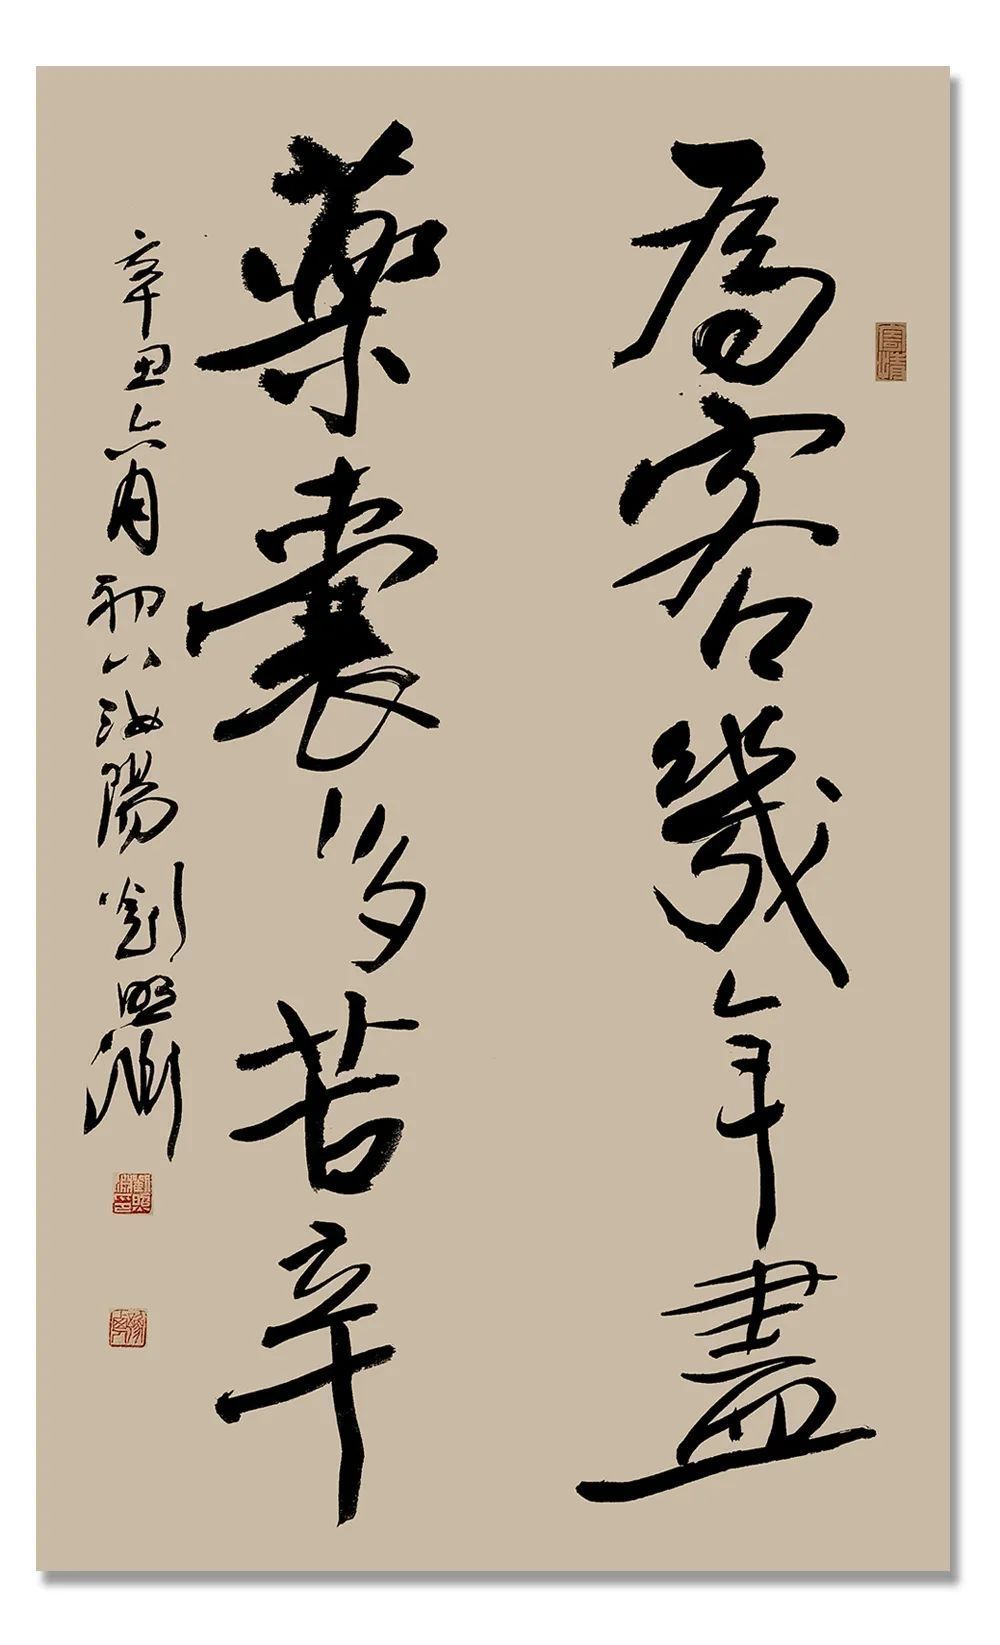 為客幾年盡
藥囊多苦辛
辛丑六月初八汝陽劉照淵